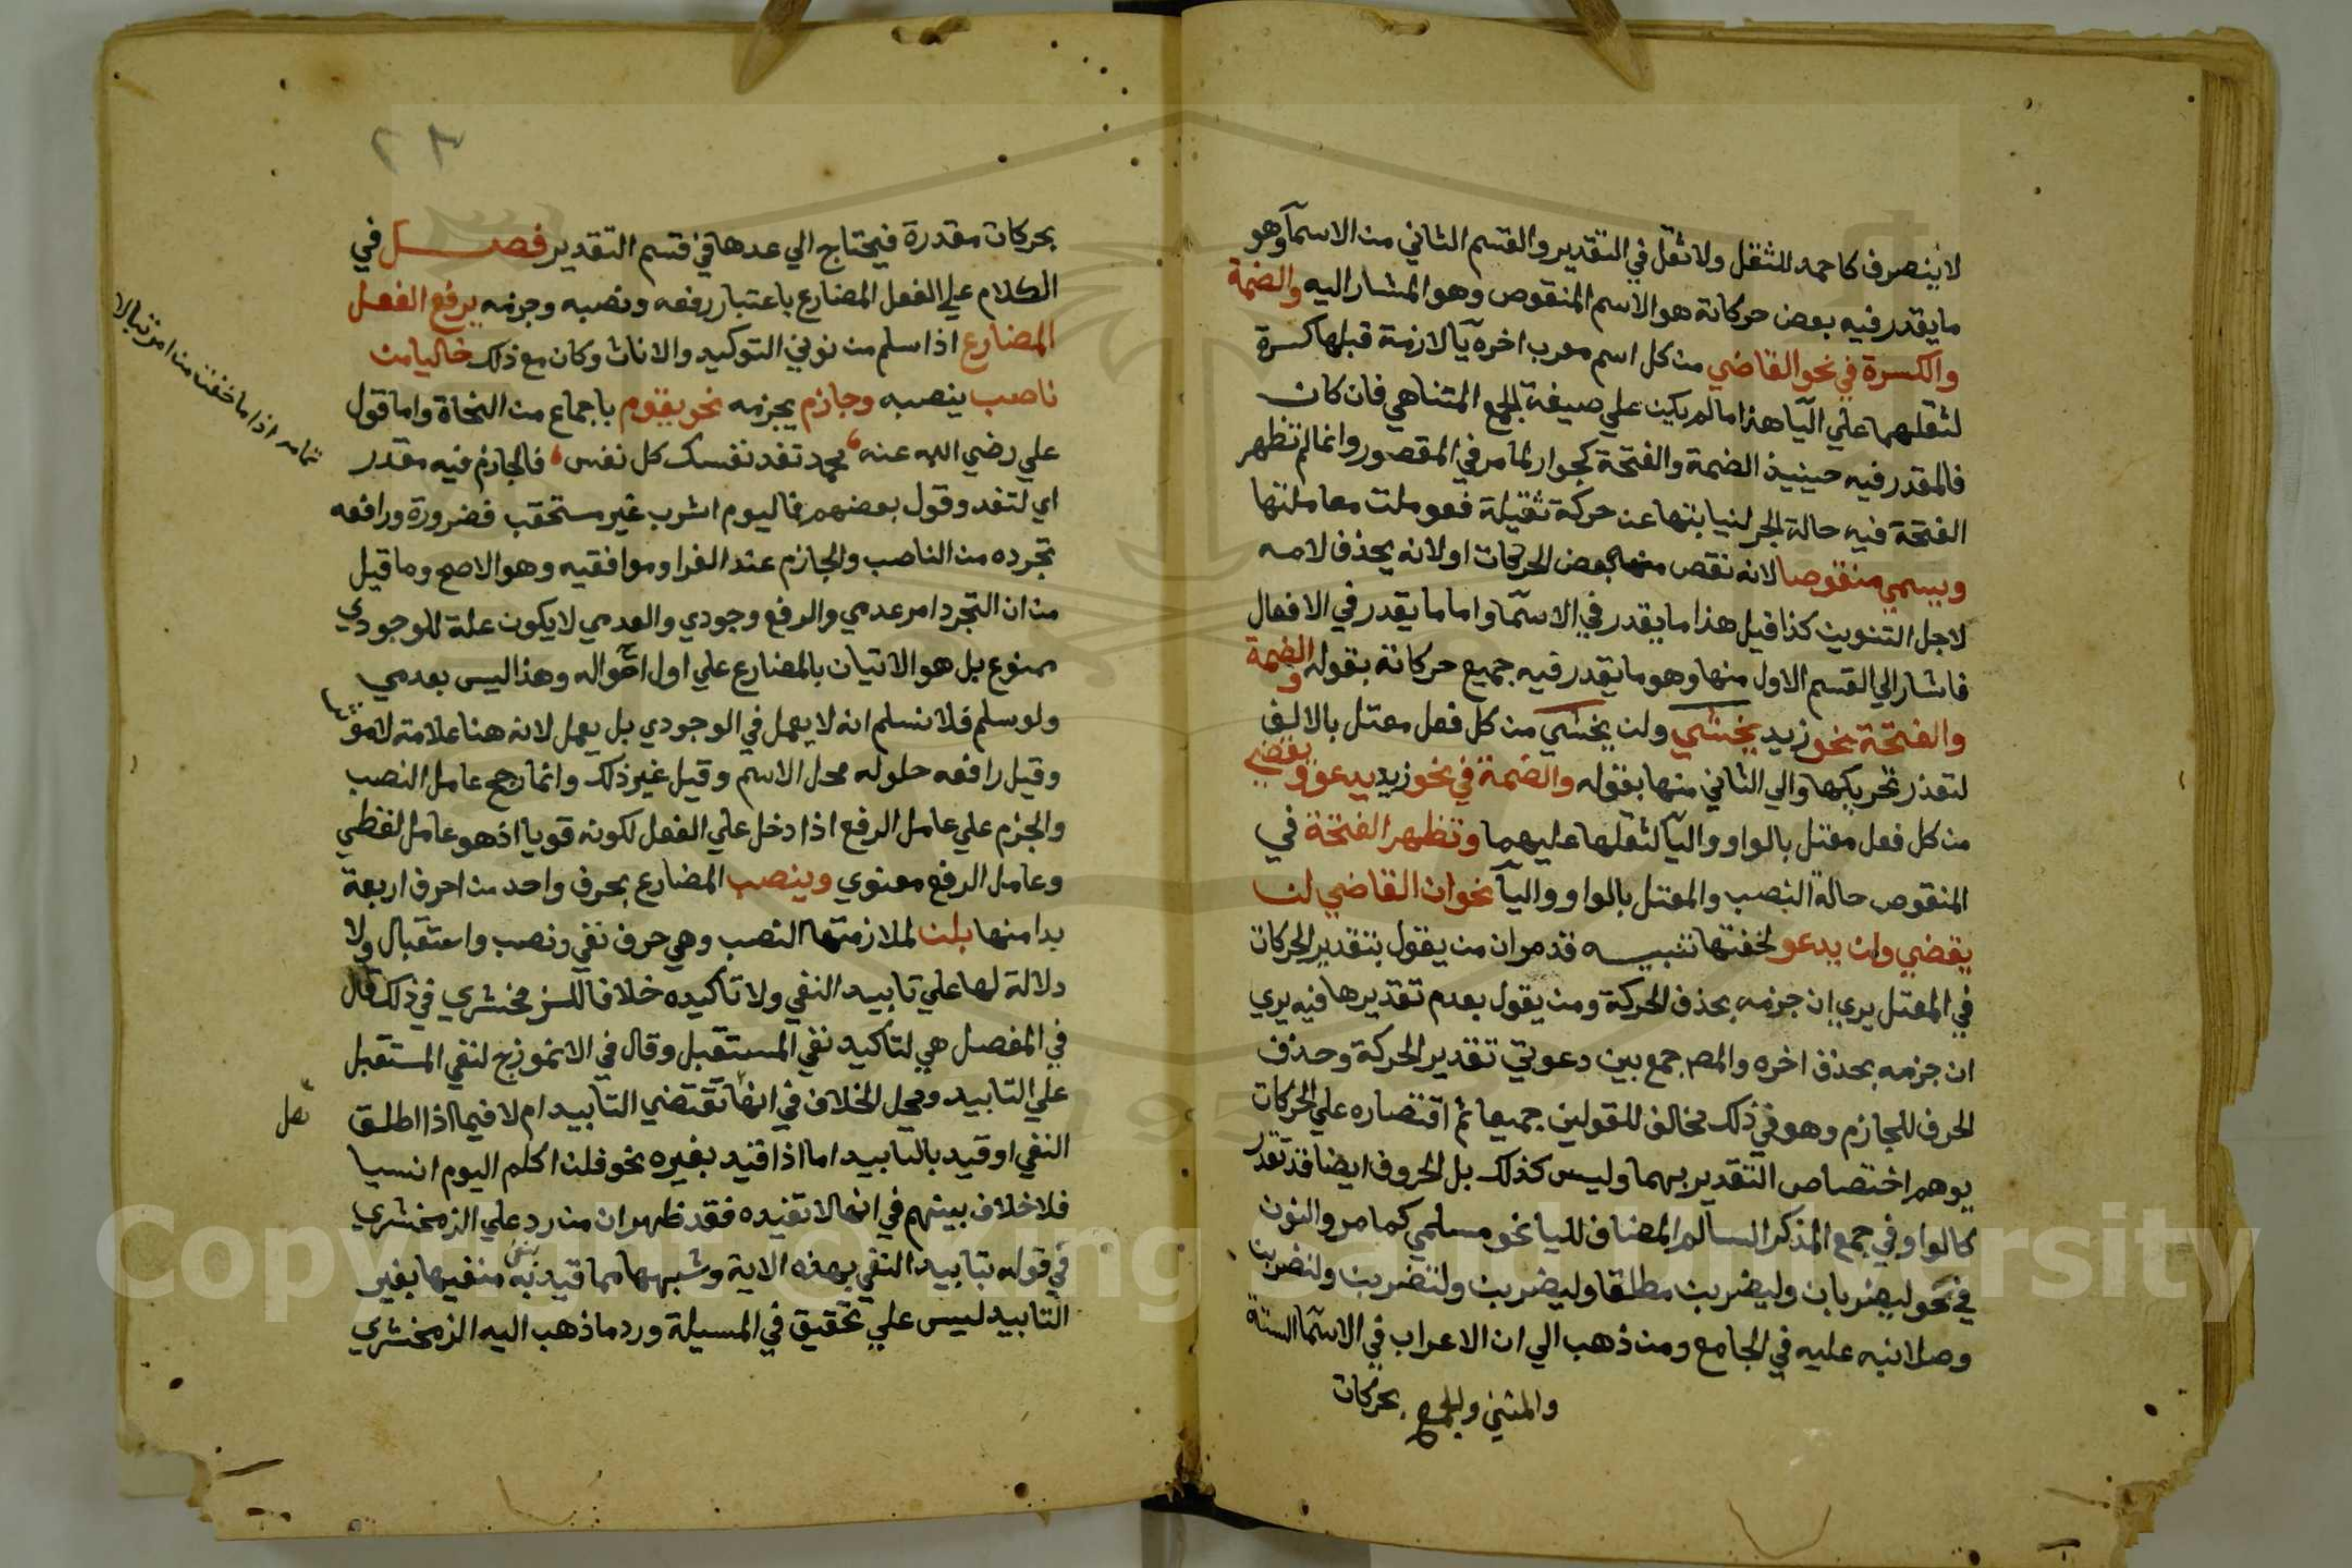 لاينصرف كاحمد للثقل ولاثقل في التقدير والقسم الثاني من الاسمآ وهو
مايقدر فيه بعض حركاته هو الاسم المنقوص وهو المشار اليه والضمة
والكسرة في نحو القاضي من كل اسم معرب اخره يآ لازمة قبلها كسرة
لثقلهما علي اليآ هذا مالم يكين علي صيغة الجمع المتناهي فان كان
فالمقدر فيه حينيذ الضمة والفتحة كجوار لما مر في المقصور وانما لم تظهر
الفتحة فيه حالة الجر لنيابتها عن حركة ثقيلة فعوملت معاملتها
ويسمي منقوصا لانه نقص منها بعض الحركات او لانه يحذف لامه
لاجل التنوين كذا قيل هذا مايقدر في الاسمآ واما ما يقدر في الافعال
فاشار الي القسم الاول منها وهو مايقدر فيه جميع حركاته بقوله والضمة
والفتحة نحو زيد يخشي ولن يخشي من كل فعل معتل بالالف
لتعذر تحريكها والي الثاني منها بقوله والضمة في نحو زيد يدعو ويقضي
من كل فعل معتل بالواو واليآ لثقلها عليهما وتظهر الفتحة في
المنقوص حالة النصب والمعتل بالواو واليآ نحو ان القاضي لن
يقضي ولن يدعو لخفتها تنبيه قد مر ان من يقول بتقدير الحركات
في المعتل يري ان جزمه بحذف الحركة ومن يقول بعدم تقديرها فيه يري
ان جزمه بحذف اخره والمص جمع بين دعوتي تقدير الحركة وحذف
الحرف للجازم وهو في ذلك مخالف للقولين جميعا ثم اقتصاره علي الحركات
يوهم اختصاص التقدير بهما وليس كذلك بل الحروف ايضا قد تقدر
كالواو في جمع المذكر السالم المضاف لليا نحو مسلمي كما مر والنون
في نحو ليضربان وليضربن مطلقا وليضربن ولتضربن ولتضربن
وصلا نبه عليه في الجامع ومن ذهب الي ان الاعراب في الاسمآ الستة
والمثني والجمع بحركات
بحركات مقدرة فيحتاج الي عدها في قسم التقدير فصل في
الكلام علي الفعل المضارع باعتبار رفعه ونصبه وجزمه يرفع الفعل
المضارع اذا سلم من نوني التوكيد والاناث وكان مع ذلك خاليا من
ناصب ينصبه وجازم يجزمه نحو يقوم باجماع من النحاة واما قول
علي رضي الله عنه محمد تفد نفسك كل نفس فالجازم فيه مقدر
اي لتفد وقول بعضهم فاليوم اشرب غير مستحقب فضرورة ورافعه
تجرده من الناصب والجازم عند الفرا وموافقيه وهو الاصح وما قيل
من ان التجرد امر عدمي والرفع وجودي والعدمي لايكون علة للوجودي
ممنوع بل هو الاتيان بالمضارع علي اول احواله وهذا ليس بعدمي
ولو سلم فلا نسلم انه لا يعمل في الوجودي بل يعمل لانه هنا علامة لا موثرا
وقيل رافعه حلوله محل الاسم وقيل غير ذلك وانما رجح عامل النصب
والجزم علي عامل الرفع اذا دخل علي الفعل لكونه قويا اذ هو عامل لفظي
وعامل الرفع معنوي وينصب المضارع بحرف واحد من احرف اربعة
بدا منها بلن لملازمتها النصب وهي حرف نفي ونصب واستقبال ولا
دلالة لها علي تابيد النفي ولا تاكيده خلافا للزمخشري في ذلك قال
في المفصل هي لتاكيد نفي المستقبل وقال في الانموزج لنفي المستقبل
علي التابيد ومحل الخلاف في انها تقتضي التابيد ام لا فيما اذا اطلق
النفي او قيد بالتابيد اما اذا قيد بغيره نحو فلن اكلم اليوم انسيا
فلا خلاف بينهم في انها لا تفيده فقد ظهر ان من رد علي الزمخشري
في قوله بتابيد النفي بهذه الاية وشبهها مما قيد به منفيها بغير
التابيد ليس علي تحقيق في المسيلة ورد ما ذهب اليه الزمخشري
تمامه اذا ما خفت من امر تبالا
Copyright © King Saud University